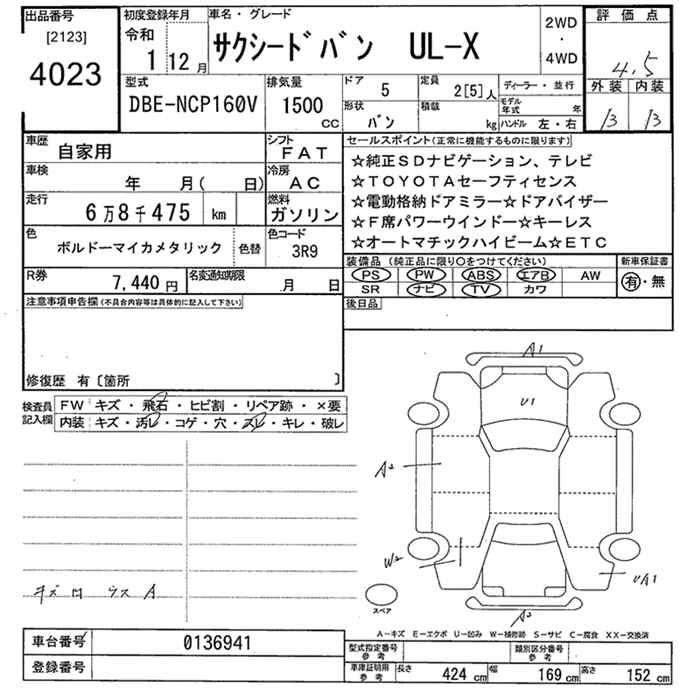 出品番号
[2123]
4023
初度登録年月
令和
1 12 月
車名・グレード
サクシードバン UL-X
2WD
・
4WD
評価点
4.5
外装 内装
B B
型式
DBE-NCP160V
排気量
1500
CC
ドア
5
定員
2[5]人
形状
バン
積載
kg
ディーラー・並行
モデル年式 年
ハンドル 左・右
車歴
自家用
シフト
FAT
車検
年 月( 日)
冷房
AC
走行
6万8千475 km
燃料
ガソリン
色
ボルドーマイカメタリック
色替
色コード
3R9
R券
7,440 円
名変通知期限
月 日
セールスポイント(正常に機能するものに限ります)
☆純正SDナビゲーション、テレビ
☆TOYOTAセーフティセンス
☆電動格納ドアミラー☆ドアバイザー
☆F席パワーウインドー☆キーレス
☆オートマチックハイビーム☆ETC
装備品 (純正品に限り○をつけてください)
PS PW ABS エアB AW
SR ナビ TV カワ
新車保証書
有・無
後日品
注意事項申告欄(不具合内容等は具体的に記入して下さい)
修復歴 有〔箇所 〕
検査員
記入欄
FW キズ・飛石・ヒビ割・リペア跡・×要
内装 キズ・汚レ・コゲ・穴・スレ・キレ・破レ
A1
U1
A2
W2
UA1
A2
スペア
キズ凹 ウス A
A−キズ E−エクボ U−凹み W−補修跡 S−サビ C−腐食 XX−交換済
車台番号
0136941
登録番号
型式指定番号
参考
類別区分番号
参考
車庫証明用
参考
長さ 424 cm 幅 169 cm 高さ 152 cm